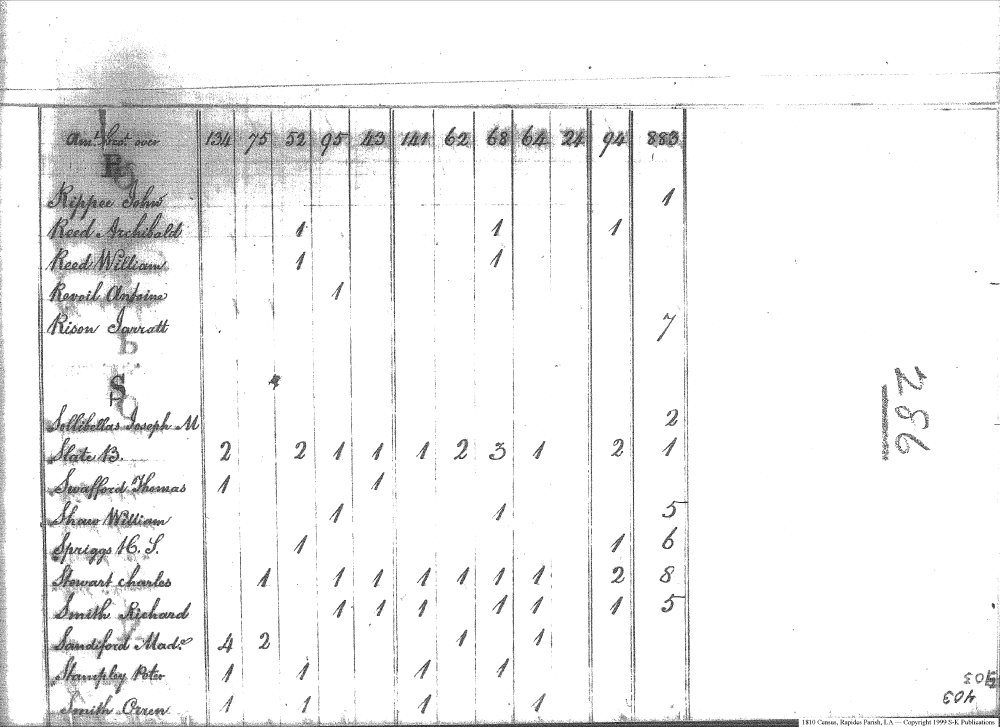 Amt. brot. over 134 75 52 95 43 141 62 68 64 24 94 883
R
Rippee John 1
Reed Archibald 1 1 1
Reed William 1 1
Revoil Antoine 1
Rison Jarratt 7
S
Sollibellas Joseph M 2
Slate B. 2 2 1 1 1 2 3 1 2 1
Swafford Thomas 1 1
Shaw William 1 1 5
Spriggs H. S. 1 1 6
Stewart Charles 1 1 1 1 1 1 1 2 8
Smith Richard 1 1 1 1 1 1 5
Sandiford Made. 4 2 1 1
Stampley Peter 1 1 1 1
Smith Orren 1 1 1 1
286
403
403
1810 Census, Rapides Parish, LA — Copyright 1999 S-K Publications